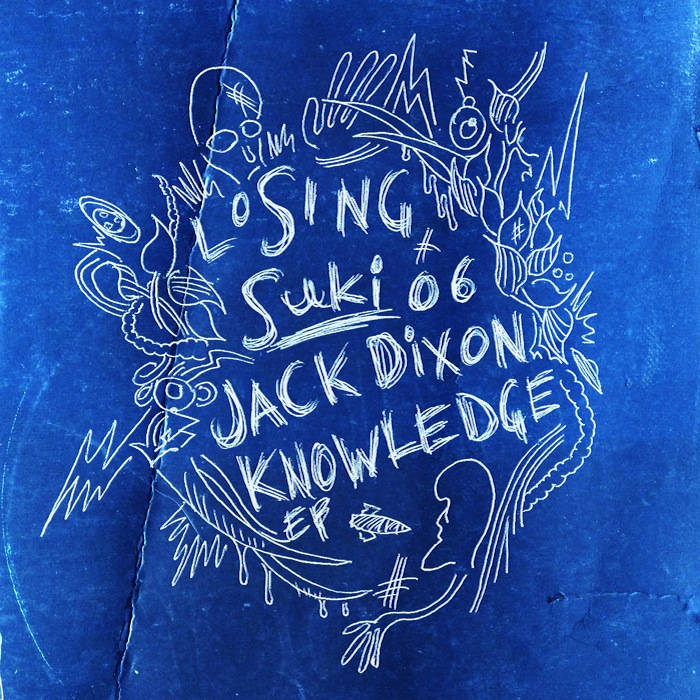 LOSING
Suki 06
JACK DiXON
KNOWLEDGE
EP